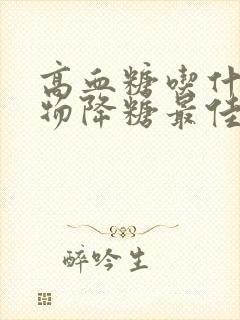 高血糖喫什
物降糖最佳
醉吟生